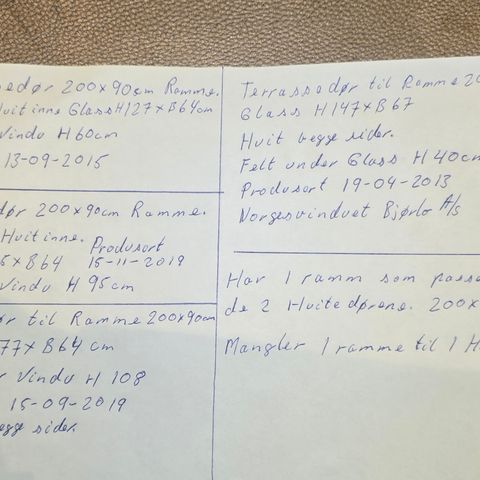 edør 200x90cm Ramme.
Huit inne Glass H127xB64cm
Vindu H60cm
13-09-2015
dør 200x90cm Ramme.
Huit inne. Produsort
5xB64 15-11-2019
Vindu H 95cm
ør til Ramme 200x90cm
77xB64cm
r Vindu H 108
15-09-2019
egge sider.
Terrassedør til Ramme 20
Glass H147xB67
Huit begge sider.
Felt under Glass H 40cm
Produsort 19-04-2013
Norgesvinduet Bjørlo A/s
Har 1 ramm som passe
de 2 Huitedørene. 200x
Mangler 1 ramme til 1 H